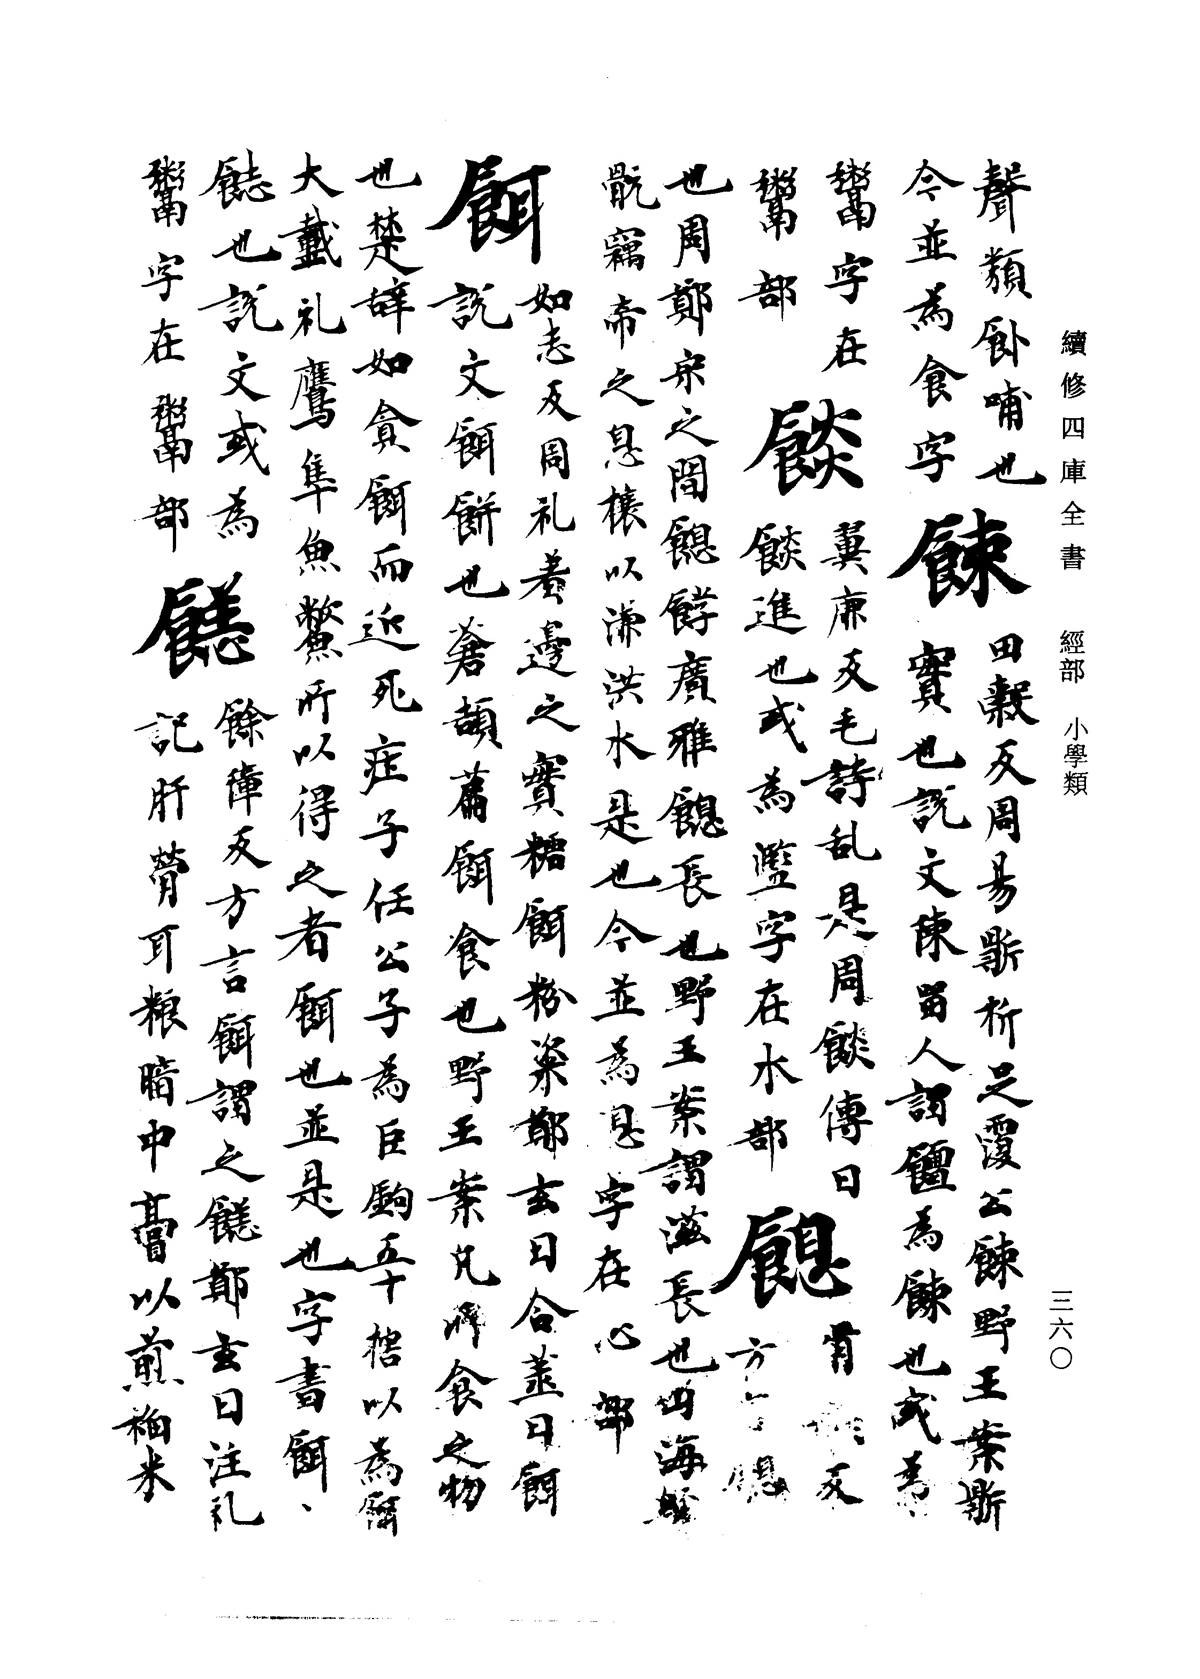 續修四庫全書　經部　小學類
三六〇
聲類卧哺也　餗　田穀反周易鼎折足覆公餗野王案鼎
今並為食字　實也說文陳留人謂饘為餗也或為
鬻字在　餤　翼廉反毛詩乱是周餤傳曰
鬻部　餤進也或為灎字在水部　䭒　胥　反
也周鄭宋之間䭒餑廣雅䭒長也野王案謂滋長也山海經
方言䭒
骩竊帝之息壤以湮洪水是也今並為息字在心部
餌　如志反周礼羞邊之實糖餌粉粢鄭玄曰合蒸曰餌
說文餌餅也蒼頡萹餌食也野王案凡所食之物
也楚辞如貪餌而近死疰子任公子為巨鉤五十犗以為餌
大戴礼鷹隼魚鱉所以得之者餌也並是也字書餌、
䭈也說文或為　䭉　餘障反方言餌謂之䭉鄭玄曰注礼
鬻字在鬻部　記肝膋耳粮暗中膏以煎稻米